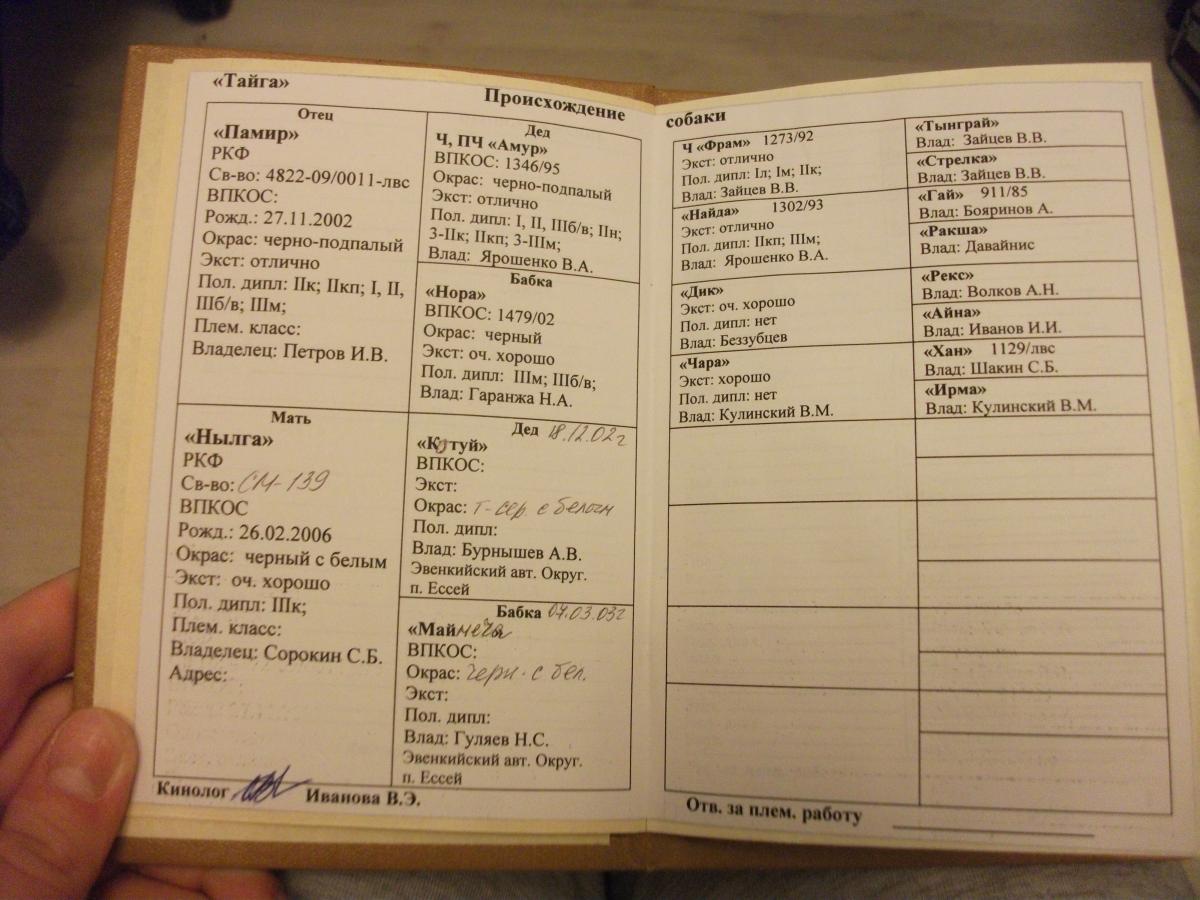 «Тайга»
Происхождение
собаки
Отец
«Памир»
РКФ
Св-во: 4822-09/0011-лвс
ВПКОС:
Рожд.: 27.11.2002
Окрас: черно-подпалый
Экст: отлично
Пол. дипл: IIк; IIкп; I, II,
IIIб/в; IIIм;
Плем. класс:
Владелец: Петров И.В.
Мать
«Нылга»
РКФ
Св-во: СМ-139
ВПКОС
Рожд.: 26.02.2006
Окрас: черный с белым
Экст: оч. хорошо
Пол. дипл: IIIк;
Плем. класс:
Владелец: Сорокин С.Б.
Адрес:
Дед
Ч, ПЧ «Амур»
ВПКОС: 1346/95
Окрас: черно-подпалый
Экст: отлично
Пол. дипл: I, II, IIIб/в; IIн;
3-IIк; IIкп; 3-IIIм;
Влад: Ярошенко В.А.
Бабка
«Нора»
ВПКОС: 1479/02
Окрас: черный
Экст: оч. хорошо
Пол. дипл: IIIм; IIIб/в;
Влад: Гаранжа Н.А.
Дед 18.12.02г
«Котуй»
ВПКОС:
Экст:
Окрас: т-сер. с белым
Пол. дипл:
Влад: Бурнышев А.В.
Эвенкийский авт. Округ.
п. Ессей
Бабка 07.03.03г
«Маймеча
ВПКОС:
Окрас: черн. с бел.
Экст:
Пол. дипл:
Влад: Гуляев Н.С.
Эвенкийский авт. Округ.
п. Ессей
Кинолог Иванова В.Э.
Ч «Фрам» 1273/92
Экст: отлично
Пол. дипл: Iл; Iм; IIк;
Влад: Зайцев В.В.
«Найда» 1302/93
Экст: отлично
Пол. дипл: IIкп; IIIм;
Влад: Ярошенко В.А.
«Дик»
Экст: оч. хорошо
Пол. дипл: нет
Влад: Беззубцев
«Чара»
Экст: хорошо
Пол. дипл: нет
Влад: Кулинский В.М.
«Тынграй»
Влад: Зайцев В.В.
«Стрелка»
Влад: Зайцев В.В.
«Гай» 911/85
Влад: Бояринов А.
«Ракша»
Влад: Давайнис
«Рекс»
Влад: Волков А.Н.
«Айна»
Влад: Иванов И.И.
«Хан» 1129/лвс
Влад: Шакин С.Б.
«Ирма»
Влад: Кулинский В.М.
Отв. за плем. работу